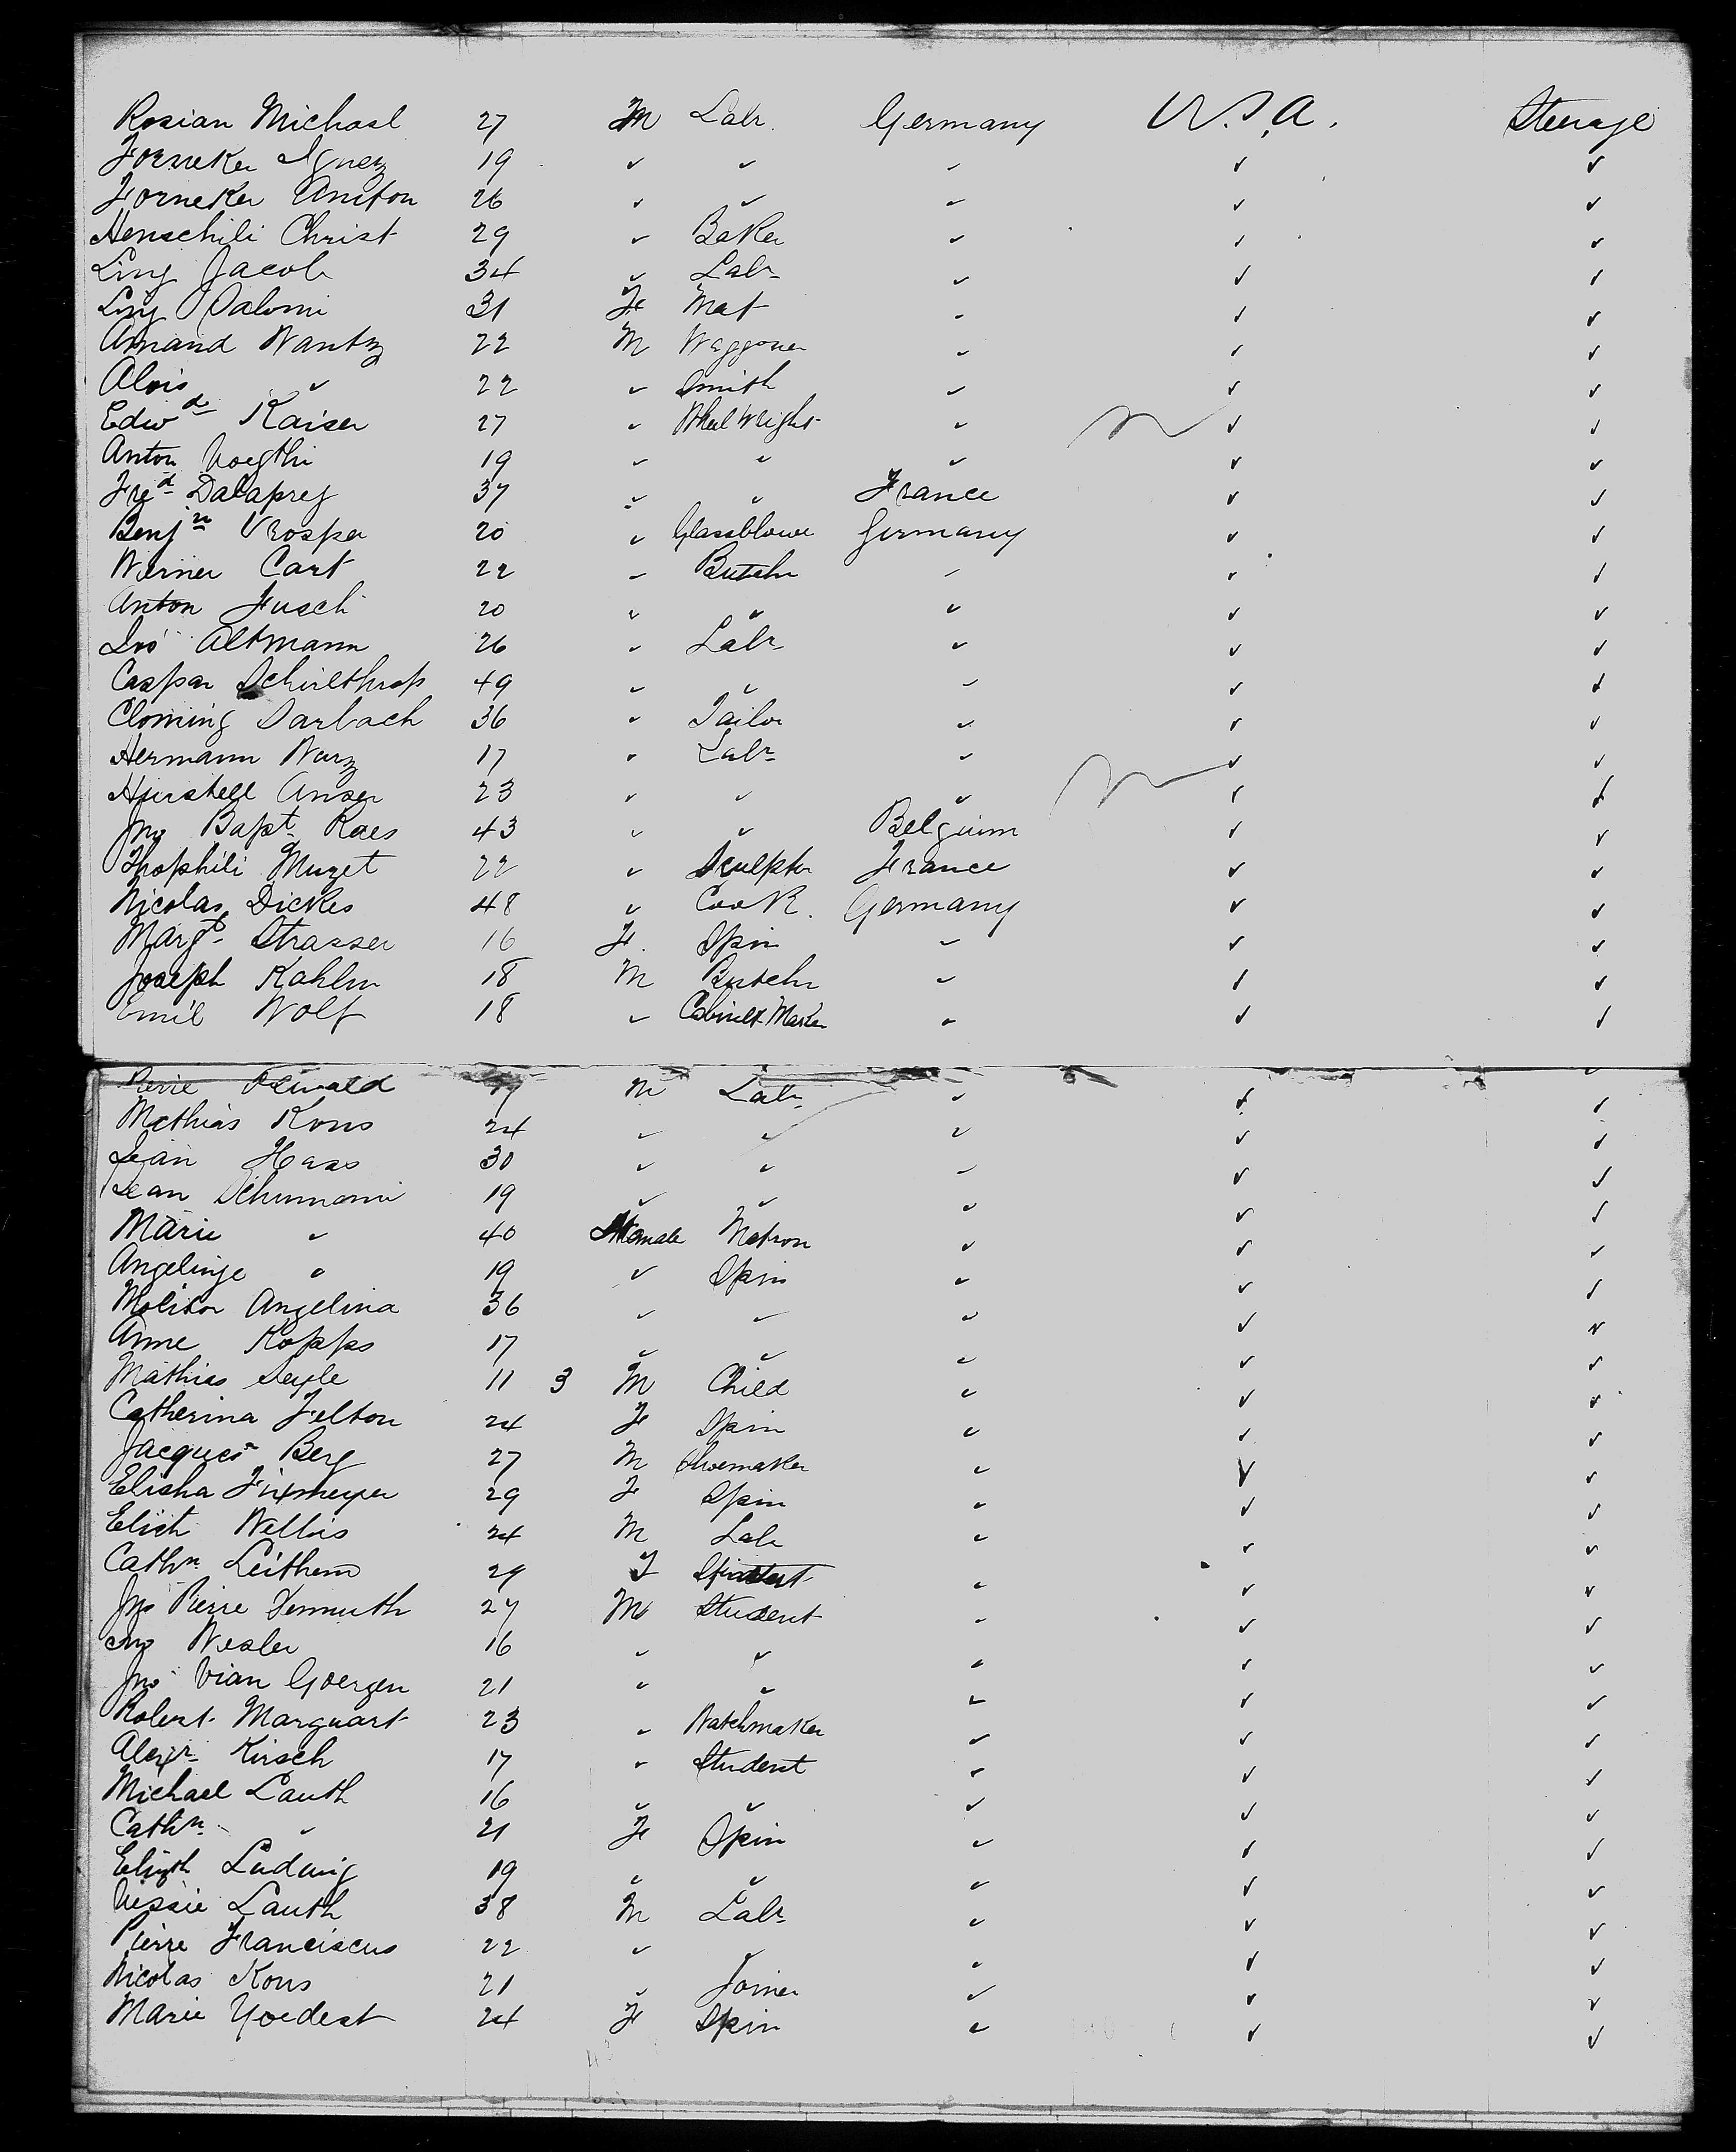 Rosian Michael 27 M Labr. Germany U.S.A. Steerage
Forneker Ignez 19 " " " " "
Forneker Aniton 26 " " " " "
Henschili Christ 29 " Baker " " "
Ling Jacob 34 " Labr " " "
Ling Salomi 31 F Mat " " "
Amand Wantz 22 M Waggoner " " "
Alois " 22 " Smith " " "
Edwd Kaiser 27 " Wheel Wright " " "
Anton Voegthi 19 " " " " "
Fred Dalaprey 37 " " France " "
Benjn Prosper 20 " Glassblower Germany " "
Werner Cart 22 " Butchr " " "
Anton Fusch 20 " " " " "
Altmann 26 " Labr " " "
Caspar 49 " " " " "
Cloming Darbach 36 " Tailor " " "
Hermann Warz 17 " Labr " " "
Hurshell Anser 23 " " " " "
Jno Bapt. Raes 43 " " Belgium " "
Thophili Muzet 22 " Sculptor France " "
Nicolas Dickes 48 " Cook. Germany " "
Margt Strasser 16 F. Spin " " "
Joseph Kahlm 18 M Butchr " " "
Emil Wolf 18 " Cabinet Maker " " "
Pierre M Labr " " "
Mathias Kons 24 " " " " "
Jean Haas 30 " " " " "
Jean Schumann 19 " " " " "
Marie " 40 Female Matron " " "
Angelinge " 19 " Spin " " "
Molitor Angelina 36 " " " " "
Anne Kopps 17 " " " " "
Mathias Seyle 11 3 M Child " " "
Catherina Felton 24 F Spin " " "
Jacques Berg 27 M Shoemaker " " "
Elisha Fixmeyer 29 F Spin " " "
Elish Welbis 24 M Lab " " "
Cathn Leithem 29 F " " "
Jno Pierre Demuth 27 M Student " " "
Jno Wesler 16 " " " " "
Jno Vian Goergen 21 " " " " "
Robert Marquart 23 " Watchmaker " " "
Alexr Kirsch 17 " Student " " "
Michael Lauth 16 " " " " "
Cathn " 21 F Spin " " "
Elizth Ludwig 19 " " " " "
Lauth 38 M Labr " " "
Pierre Franciscus 22 " " " " "
Nicolas Kons 21 " Joiner " " "
Marie Yoedest 24 F Spin " " "